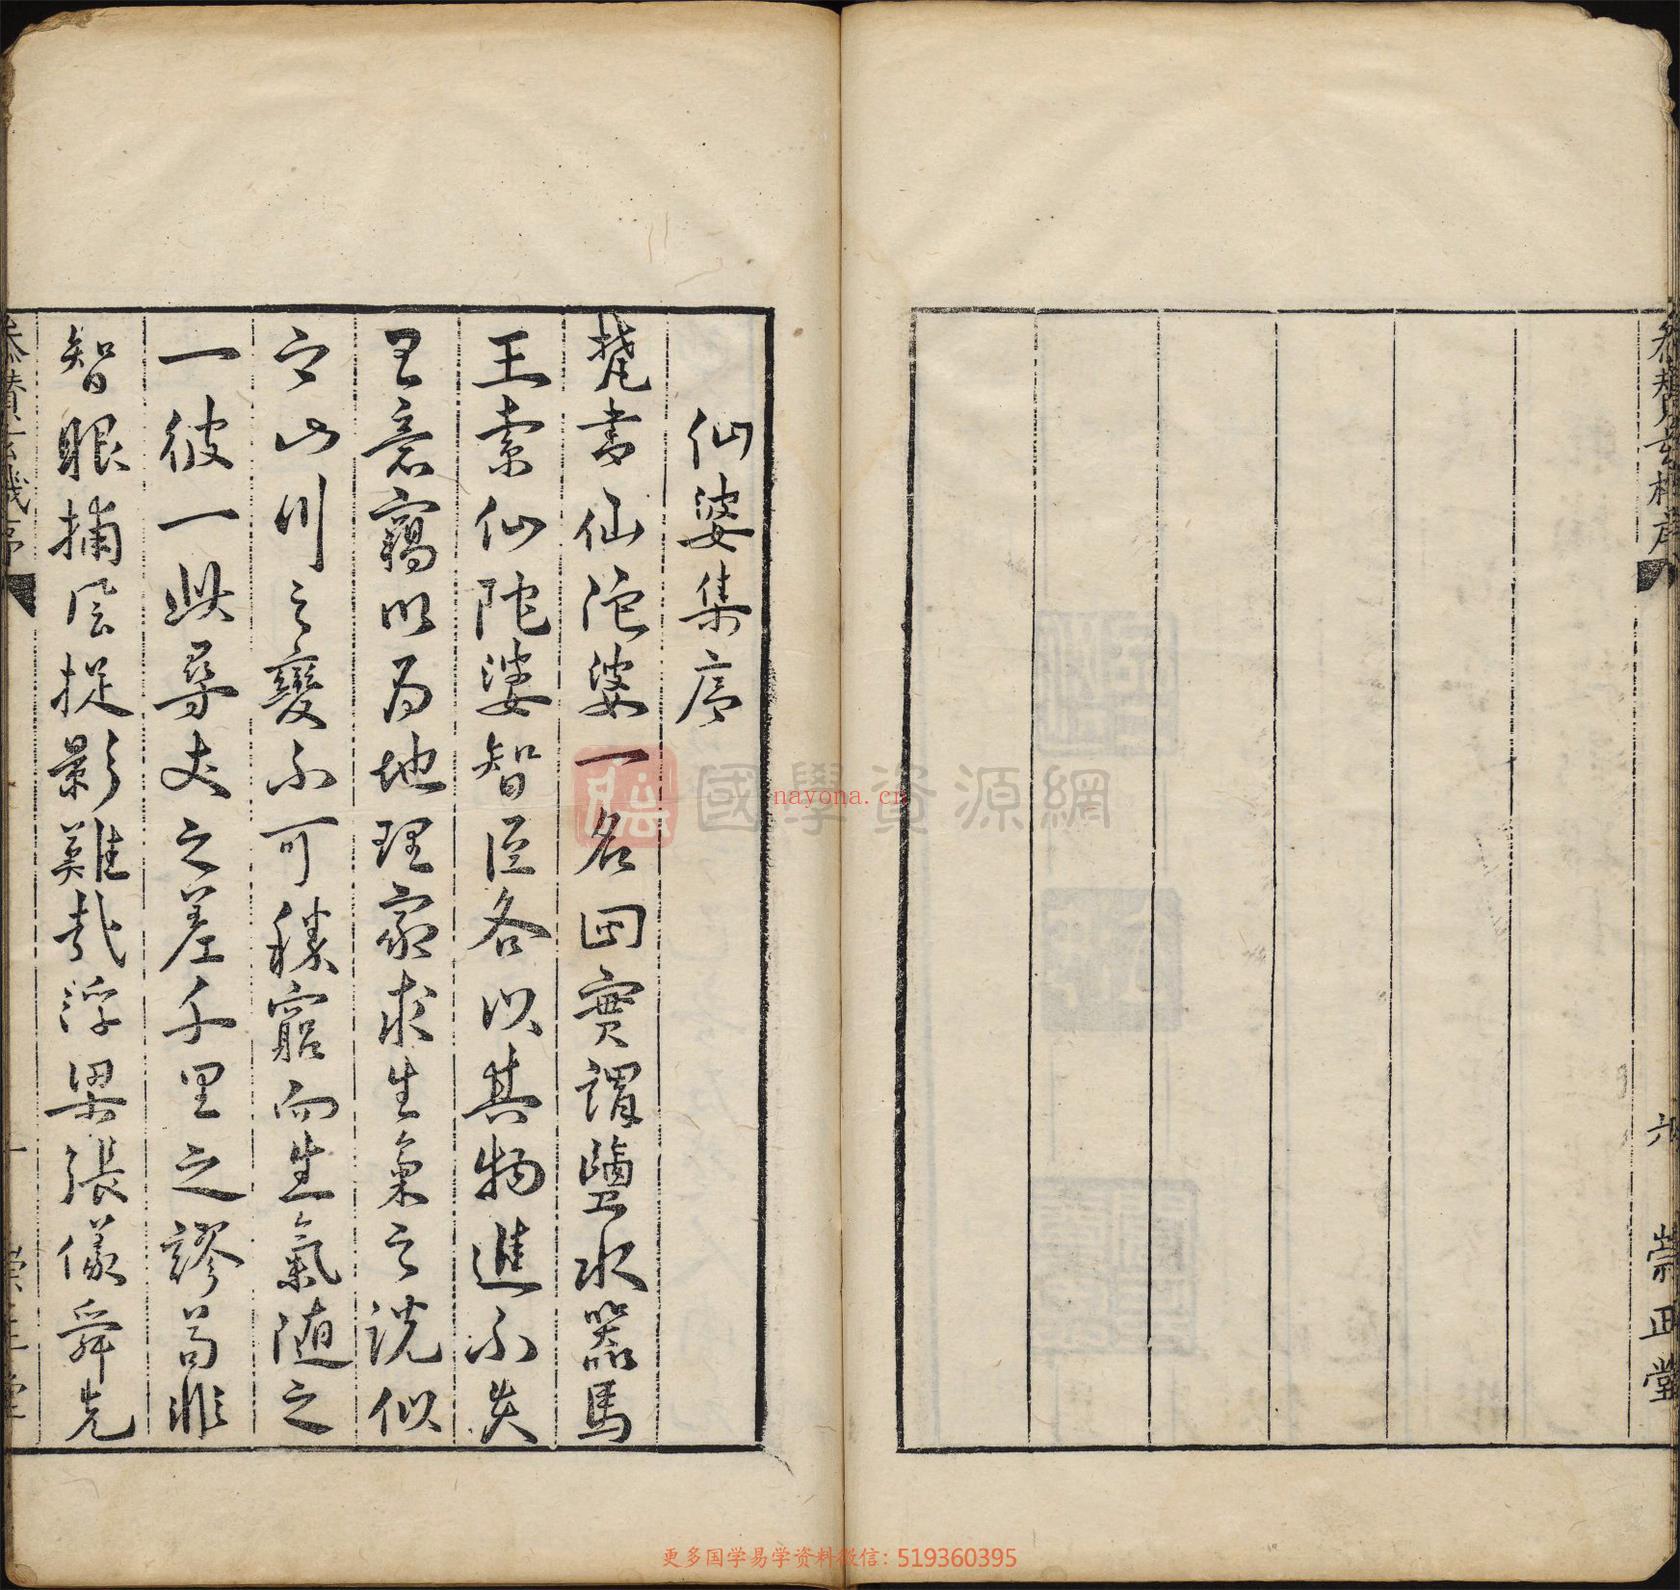 參贊玄機序
六
崇正堂
仙婆集序
梵書仙陀婆一名四實謂鹽水器馬
王索仙陀婆智臣各以其物進不失
王意竊以為地理家求生氣之說似
之山川之變不可勝窮而生氣隨之
一彼一此尋丈之差千里之謬苟非
智眼捕風捉影難哉浮梁張儀舜先
國學資源網
nayona.cn
更多国学易学资料微信：519360395